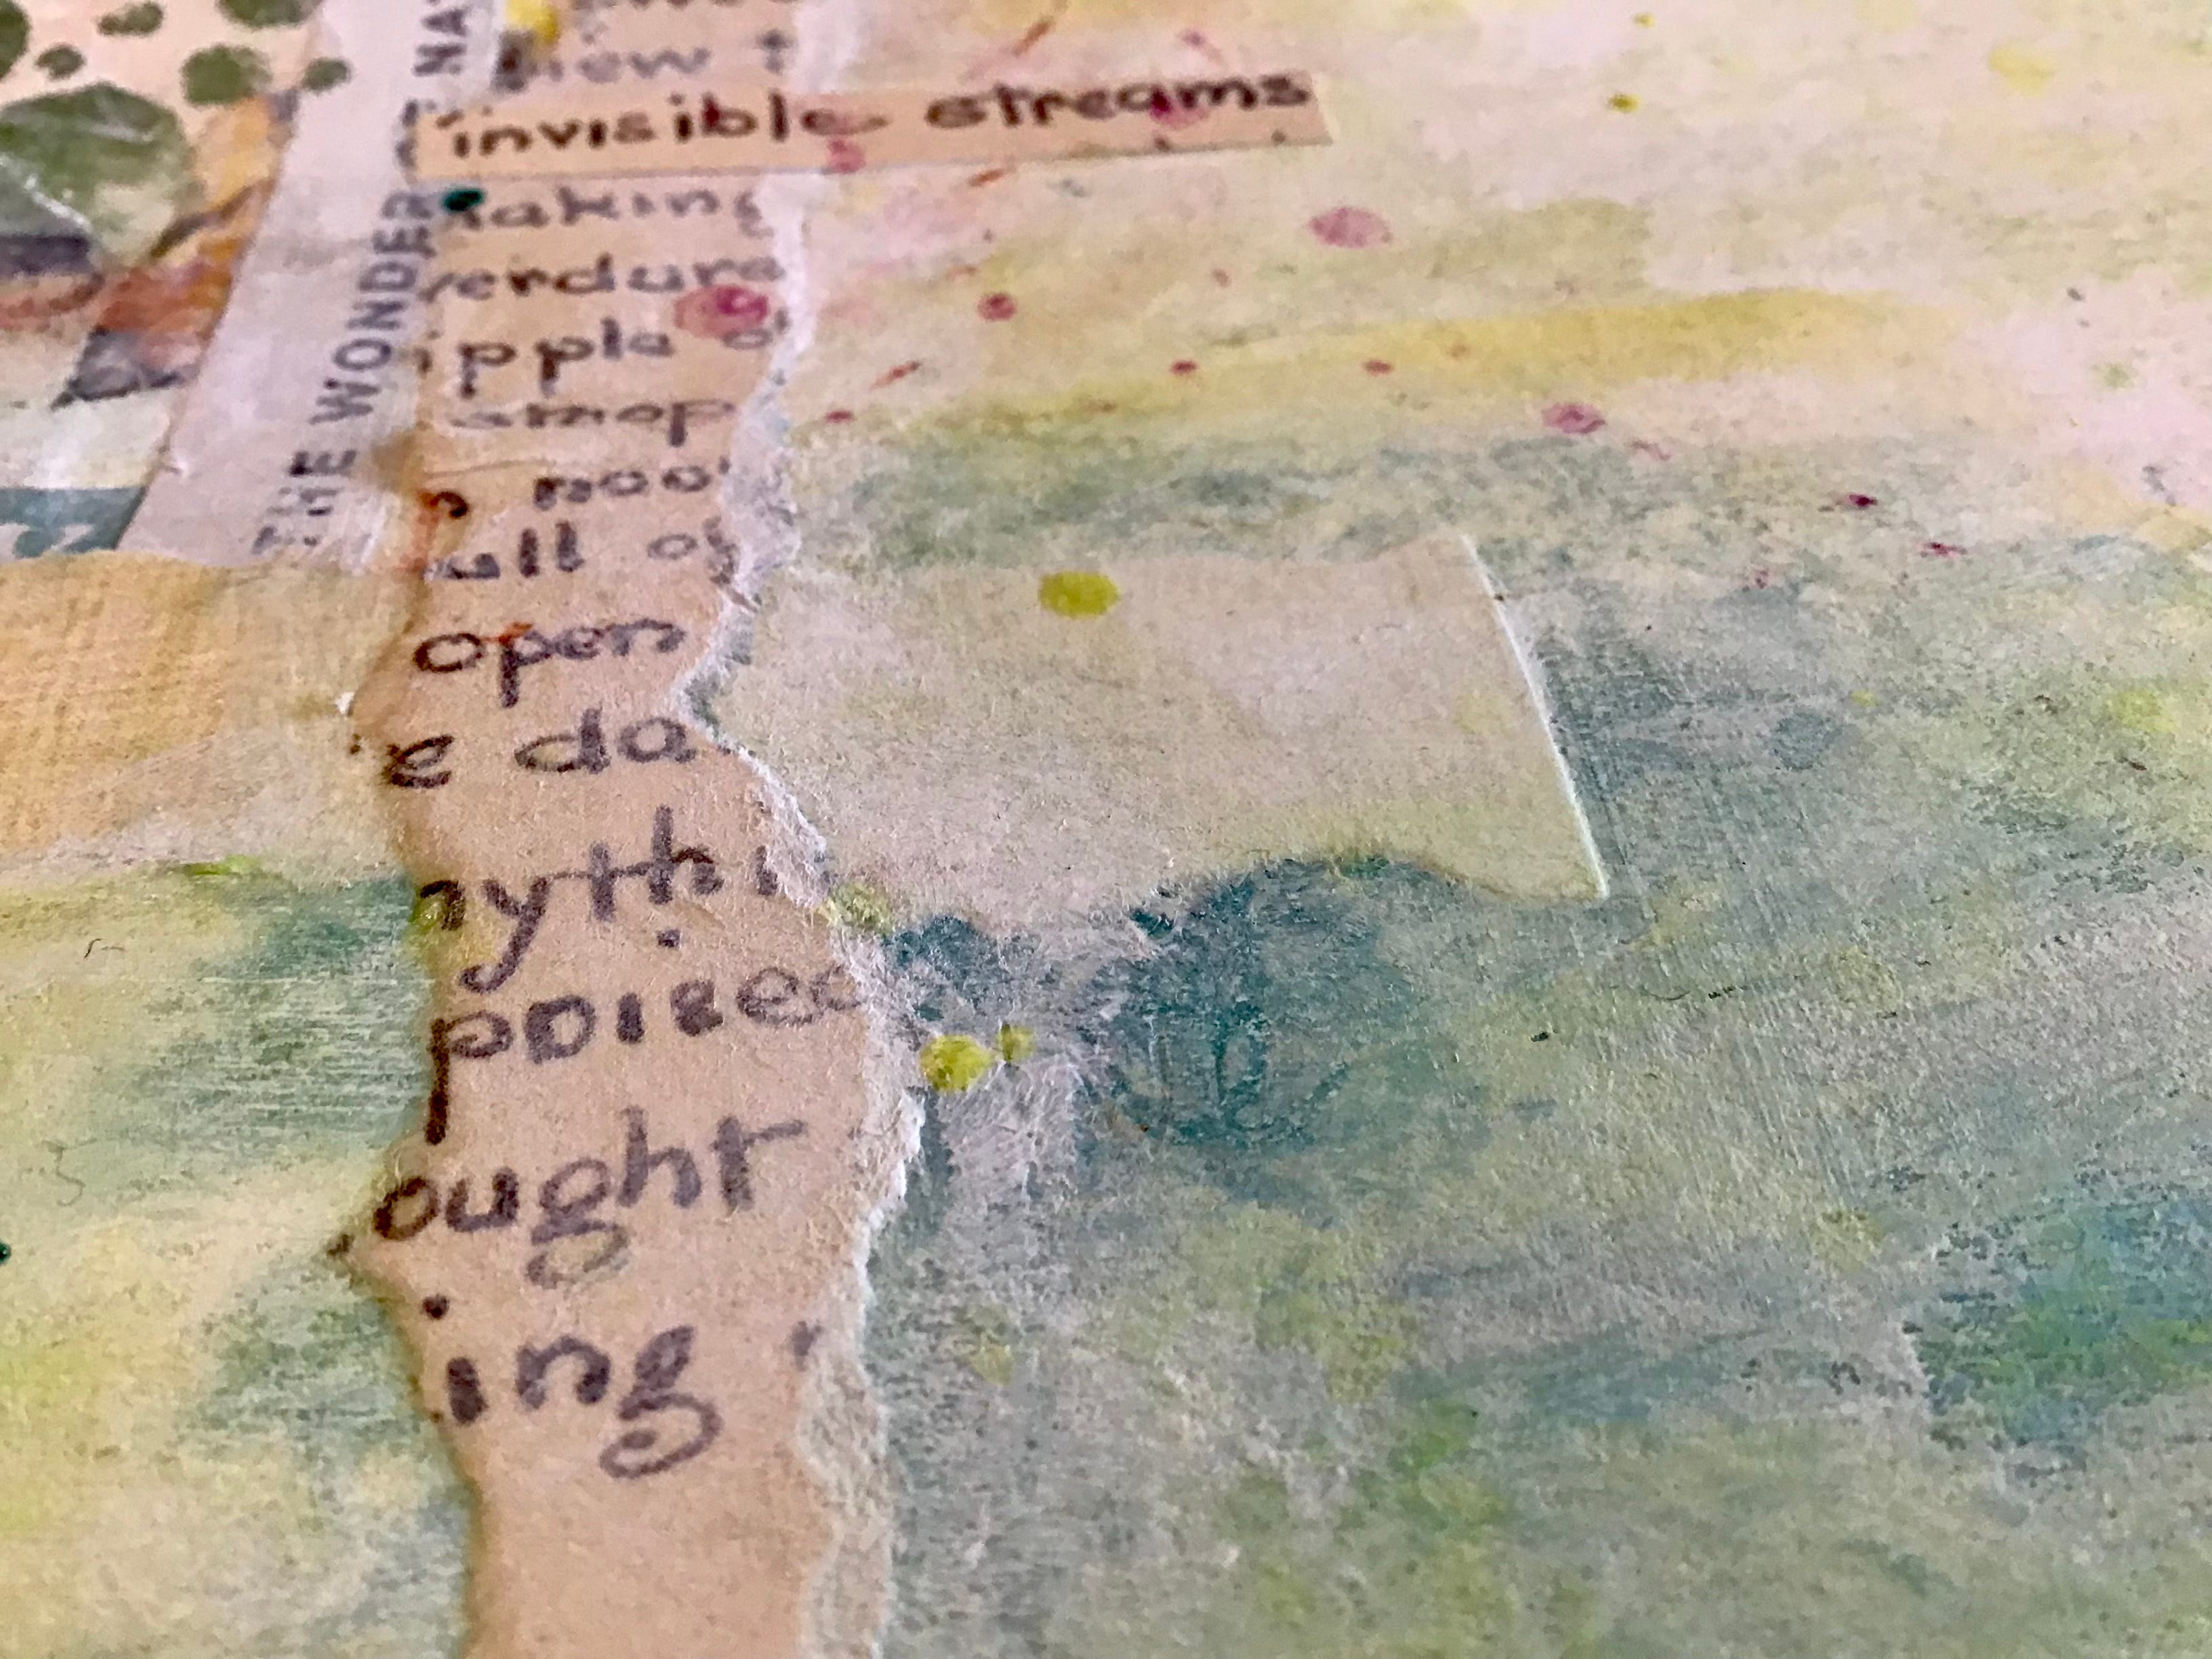 THE WONDER
invisible streams
aking
verdure
ipple o
smop
s noo
ull of
open
e da
nythi
poised
ought
ing